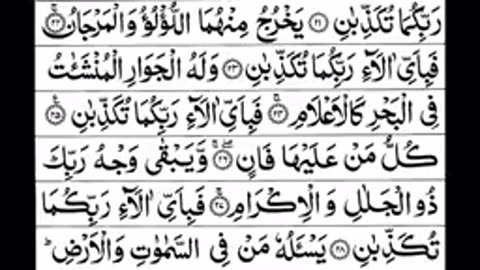 رَبِّكُمَا تُكَذِّبٰنِ ﴿۲۱﴾ يَخْرُجُ مِنْهُمَا اللُّؤْلُؤُ وَالْمَرْجَانُ ﴿۲۲﴾
فَبِاَيِّ اٰلَآءِ رَبِّكُمَا تُكَذِّبٰنِ ﴿۲۳﴾ وَلَهُ الْجَوَارِ الْمُنْشَئٰتُ
فِي الْبَحْرِ كَالْاَعْلَامِ ﴿۲۴﴾ فَبِاَيِّ اٰلَآءِ رَبِّكُمَا تُكَذِّبٰنِ ﴿۲۵﴾
كُلُّ مَنْ عَلَيْهَا فَانٍ ﴿۲۶﴾ وَّيَبْقٰى وَجْهُ رَبِّكَ
ذُو الْجَلٰلِ وَالْاِكْرَامِ ﴿۲۷﴾ فَبِاَيِّ اٰلَآءِ رَبِّكُمَا
تُكَذِّبٰنِ ﴿۲۸﴾ يَسْئَلُهٗ مَنْ فِي السَّمٰوٰتِ وَالْاَرْضِ ؕ